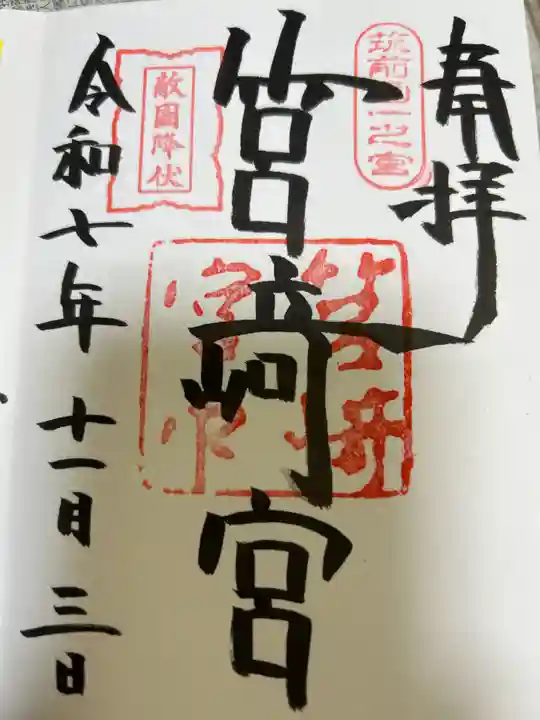 奉拝
筑前國一之宮
筥崎宮
敵國降伏
令和七年十一月三日